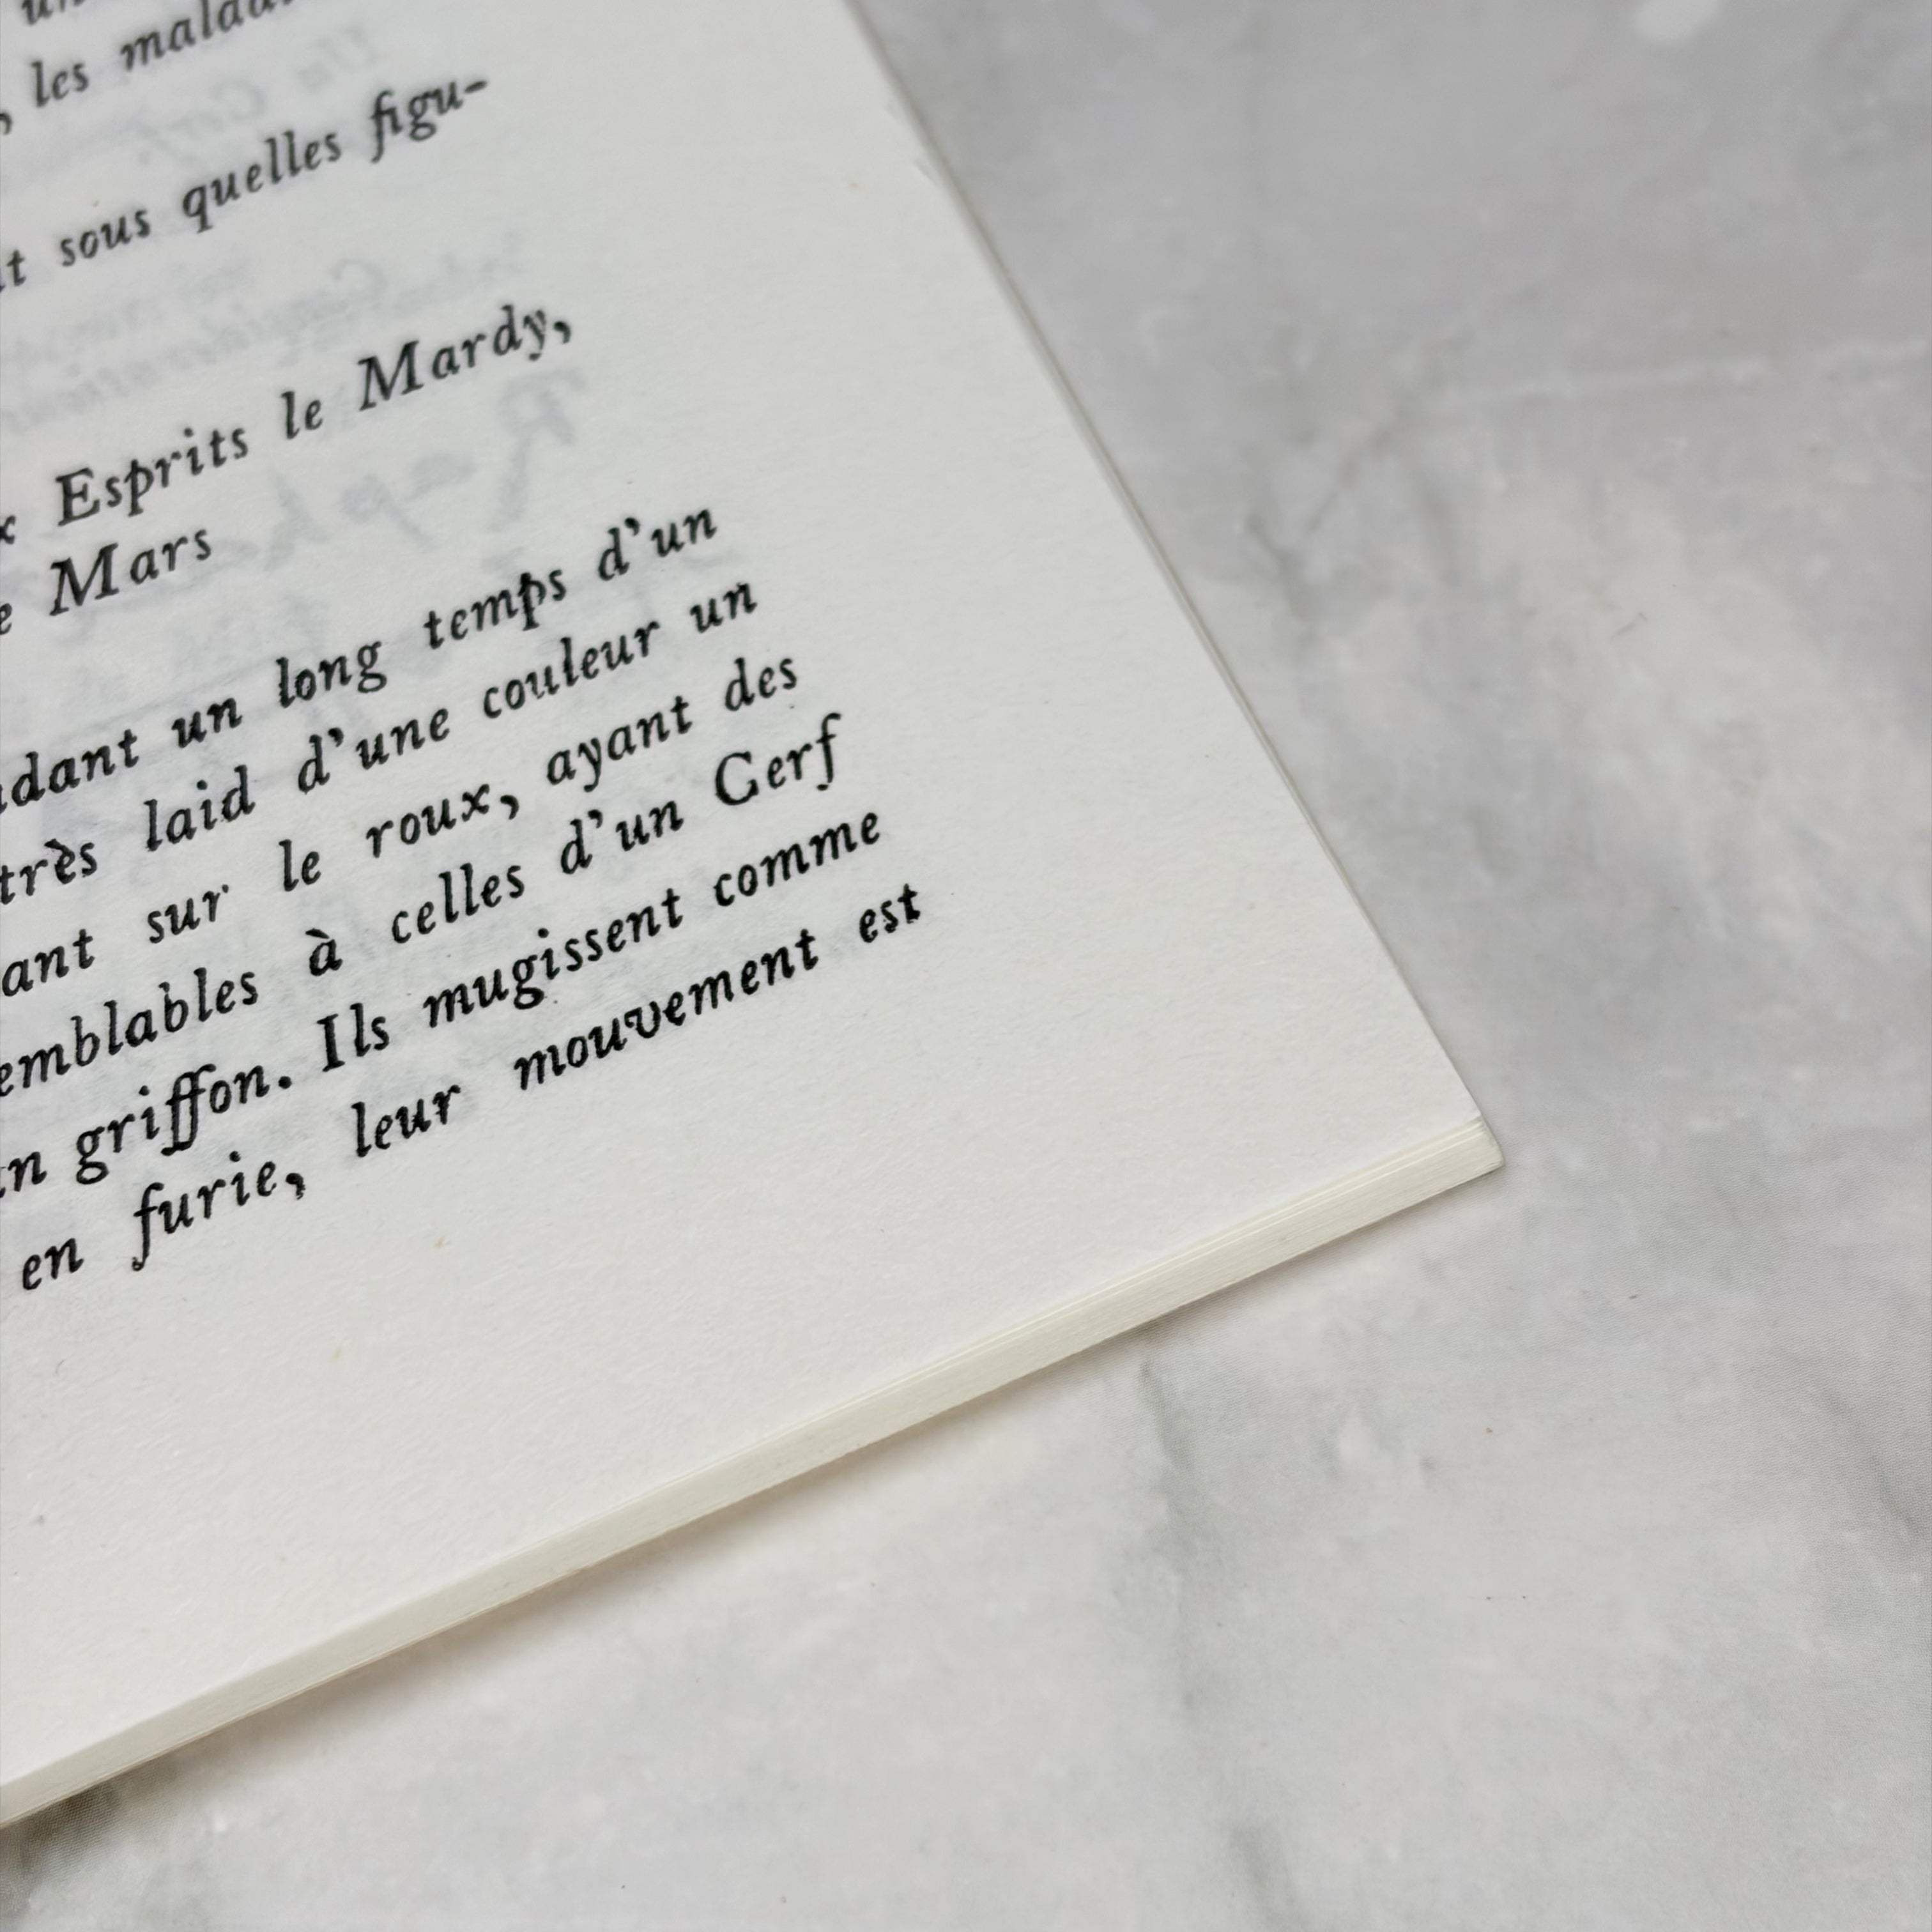 , les
sous quelles figu-
Esprits le Mardy,
Mars
dant un long temps d'un
très laid d'une couleur un
ant sur le roux, ayant des
emblables à celles d'un Cerf
griffon. Ils mugissent comme
en furie, leur mouvement est